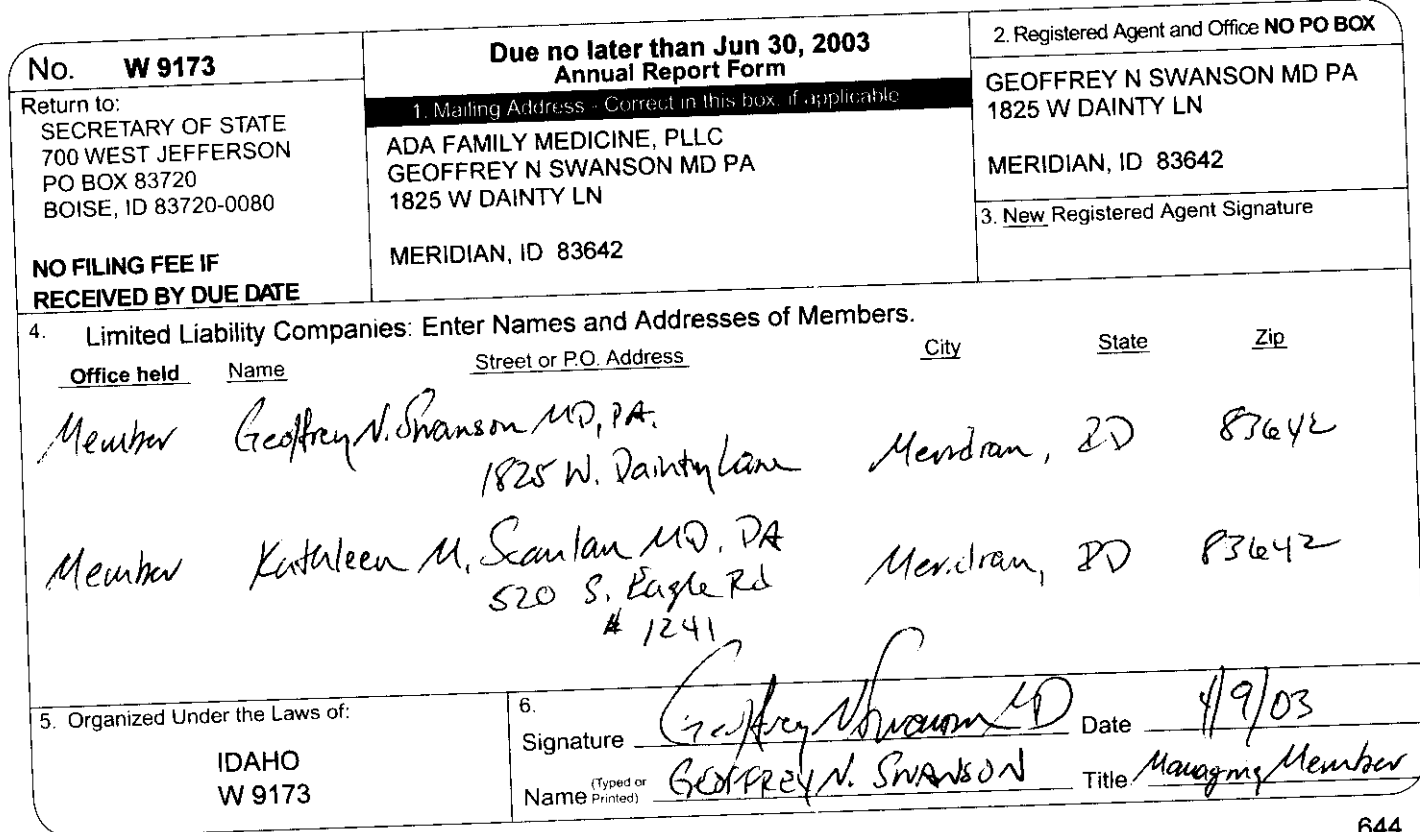 No. W 9173
Return to:
SECRETARY OF STATE
700 WEST JEFFERSON
PO BOX 83720
BOISE, ID 83720-0080
NO FILING FEE IF
RECEIVED BY DUE DATE
Due no later than Jun 30, 2003
Annual Report Form
1. Mailing Address - Correct in this box, if applicable
ADA FAMILY MEDICINE, PLLC
GEOFFREY N SWANSON MD PA
1825 W DAINTY LN
MERIDIAN, ID 83642
2. Registered Agent and Office NO PO BOX
GEOFFREY N SWANSON MD PA
1825 W DAINTY LN
MERIDIAN, ID 83642
3. New Registered Agent Signature
4. Limited Liability Companies: Enter Names and Addresses of Members.
Office held Name Street or P.O. Address City State Zip
Member Geoffrey N. Swanson MD, PA.
1825 W. Dainty Lane Meridian, ID 83642
Member Kathleen M. Scanlan MD, PA
520 S. Eagle Rd Meridian, ID 83642
# 1241
5. Organized Under the Laws of:
IDAHO
W 9173
6.
Signature Geoffrey N Swanson MD Date 4/9/03
Name (Typed or Printed) GEOFFREY N. SWANSON Title Managing Member
644